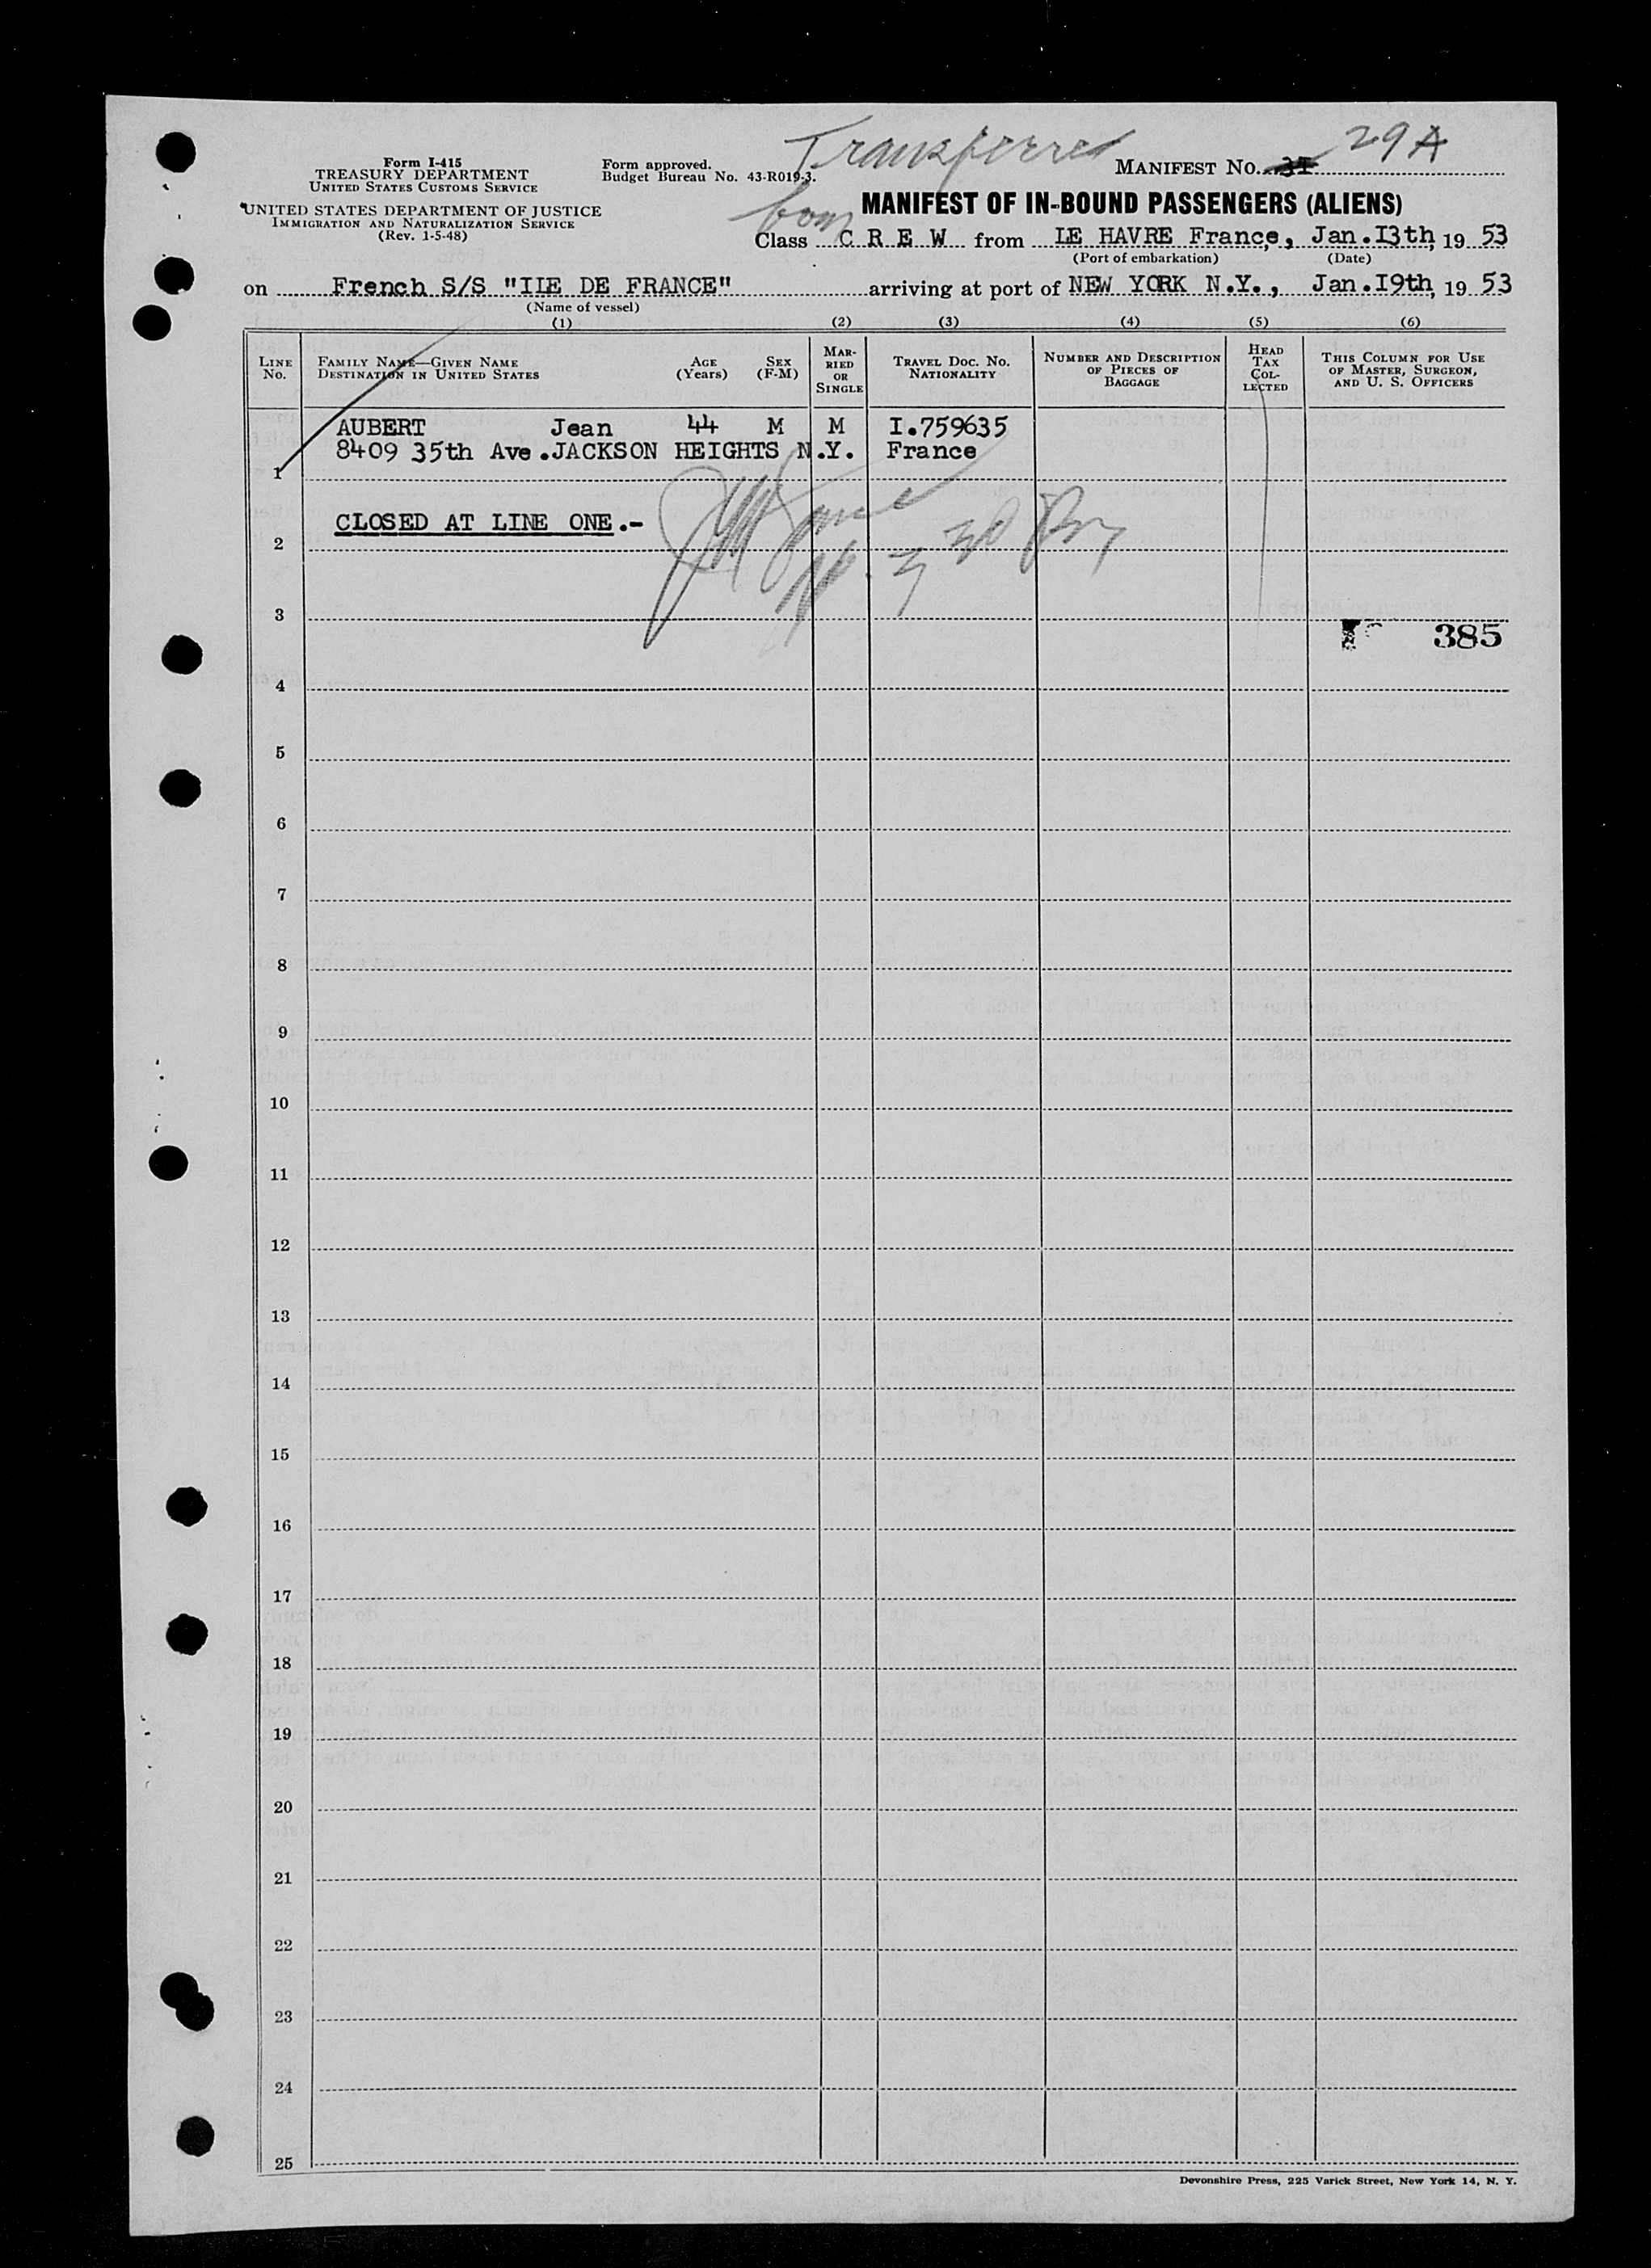 Transferred 29A
Form I-415
TREASURY DEPARTMENT
UNITED STATES CUSTOMS SERVICE
UNITED STATES DEPARTMENT OF JUSTICE
IMMIGRATION AND NATURALIZATION SERVICE
(Rev. 1-5-48)
Form approved.
Budget Bureau No. 43-R019-3.
MANIFEST NO.
from
MANIFEST OF IN-BOUND PASSENGERS (ALIENS)
Class C R E W from LE HAVRE France, Jan.I3th, 19 53
(Port of embarkation) (Date)
on French S/S "ILE DE FRANCE" arriving at port of NEW YORK N.Y., Jan.I9th, 19 53
(Name of vessel)
(1) (2) (3) (4) (5) (6)
LINE NO.
FAMILY NAME—GIVEN NAME
DESTINATION IN UNITED STATES
AGE (Years)
SEX (F-M)
MARRIED OR SINGLE
TRAVEL DOC. NO. NATIONALITY
NUMBER AND DESCRIPTION OF PIECES OF BAGGAGE
HEAD TAX COLLECTED
THIS COLUMN FOR USE OF MASTER, SURGEON, AND U. S. OFFICERS
AUBERT Jean 44 M M I.759635
8409 35th Ave.JACKSON HEIGHTS N.Y. France
1
CLOSED AT LINE ONE.-
2
3
385
4
5
6
7
8
9
10
11
12
13
14
15
16
17
18
19
20
21
22
23
24
25
Devonshire Press, 225 Varick Street, New York 14, N. Y.